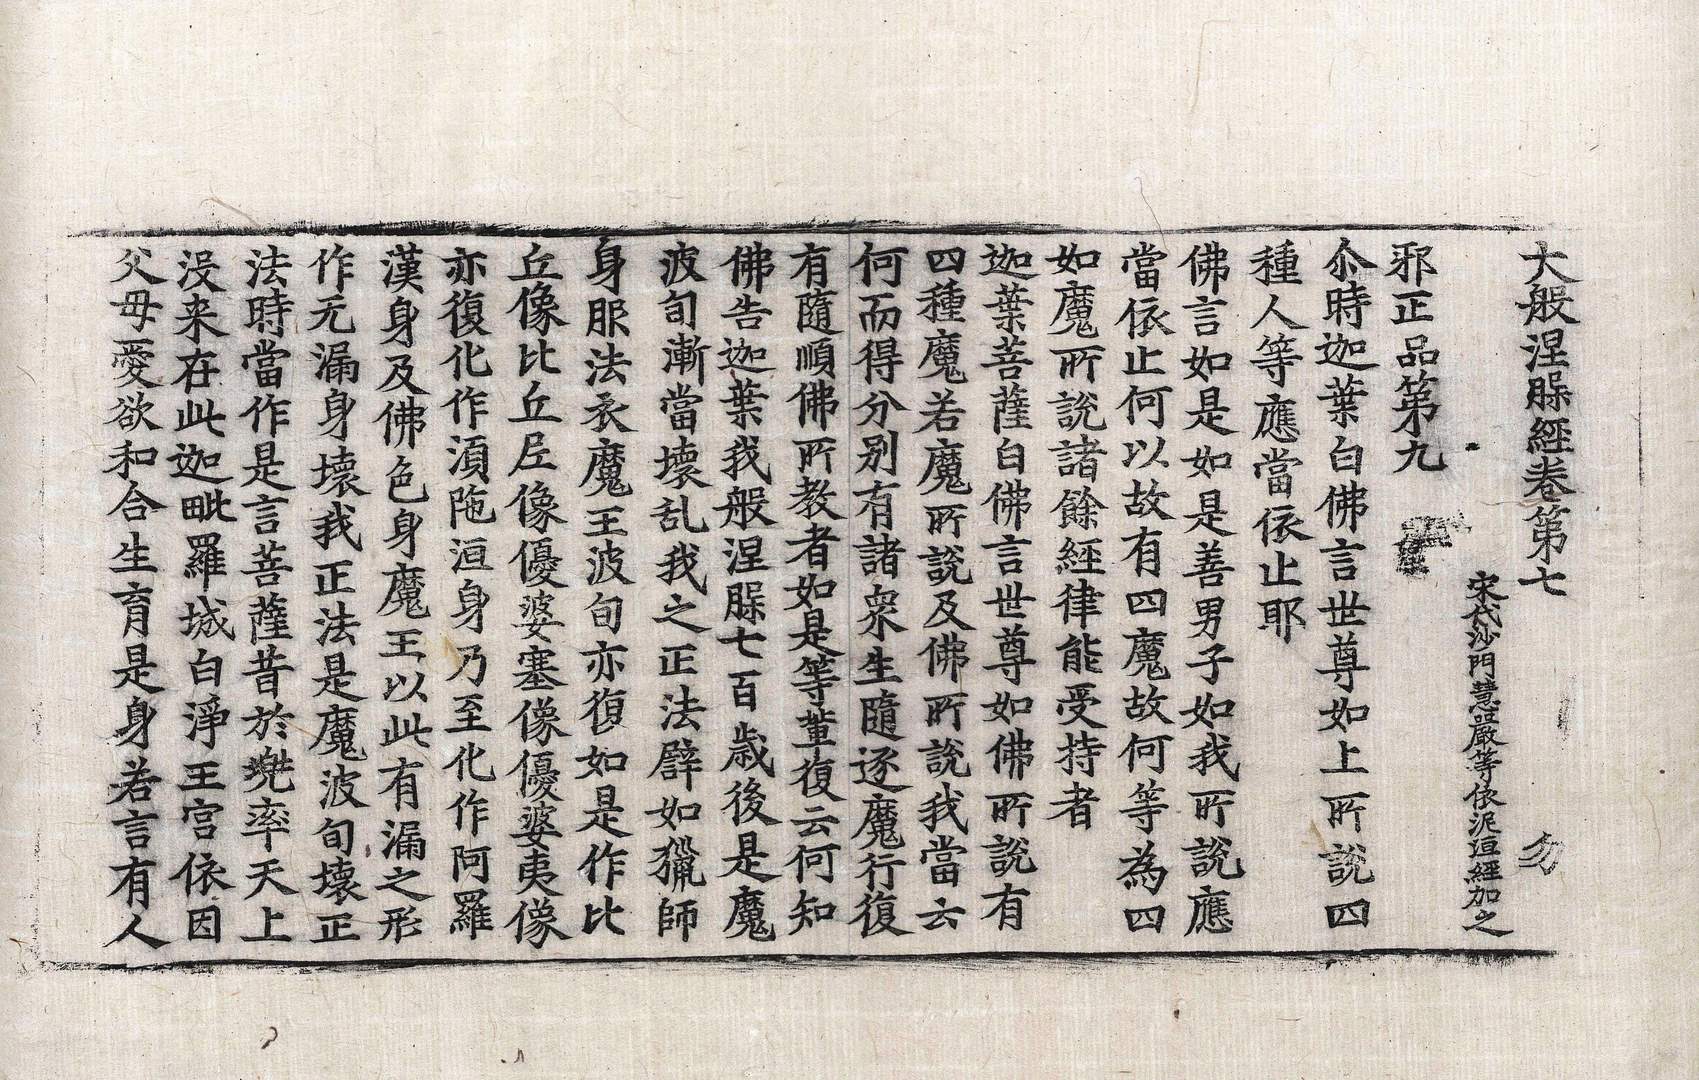 大般涅槃經卷第七 勿
宋代沙門慧嚴等依泥洹經加之
邪正品第九
尒時迦葉白佛言世尊如上所說四
種人等應當依止耶
佛言如是如是善男子如我所說應
當依止何以故有四魔故何等為四
如魔所說諸餘經律能受持者
迦葉菩薩白佛言世尊如佛所說有
四種魔若魔所說及佛所說我當云
何而得分別有諸衆生隨逐魔行復
有隨順佛所教者如是等輩復云何知
佛告迦葉我般涅槃七百歲後是魔
波旬漸當壞乱我之正法譬如獵師
身服法衣魔王波旬亦復如是作比
丘像比丘尼像優婆塞像優婆夷像
亦復化作湏陁洹身乃至化作阿羅
漢身及佛色身魔王以此有漏之形
作无漏身壞我正法是魔波旬壞正
法時當作是言菩薩昔於兠率天上
沒来在此迦毗羅城白淨王宮依因
父母愛欲和合生育是身若言有人